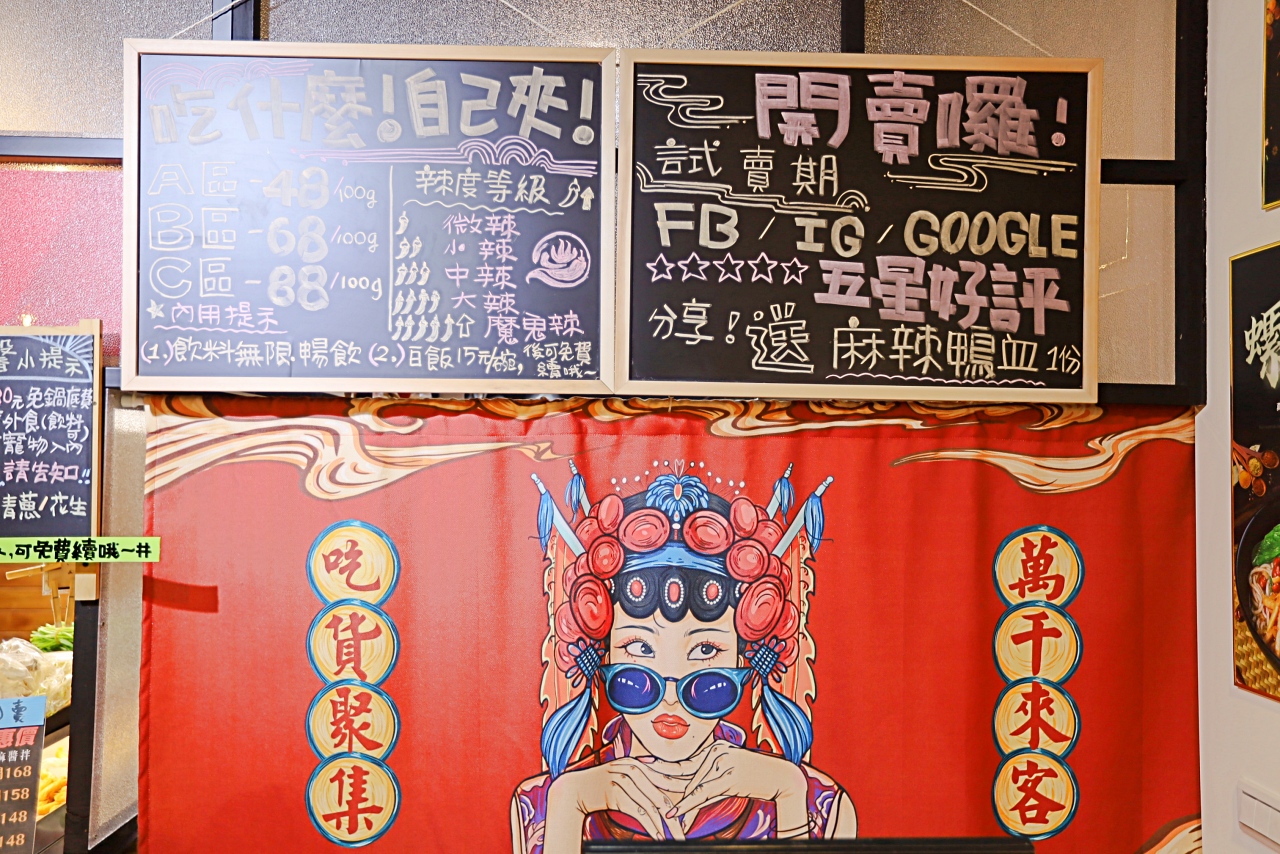 吃什麼!自己來!
A區-48/100g
B區-68/100g
C區-88/100g
★內用提示
辣度等級
微辣
小辣
中辣
大辣
魔鬼辣
(1.)飲料無限.暢飲 (2.)白飯15元/碗,後可免費
續哦~
開賣囉!
試賣期
FB/IG/GOOGLE
☆☆☆☆☆五星好評
分享!送麻辣鴨血1份
小提示
0元免鍋底費
外食(飲料)
寵物入內
請告知!!
青蔥/花生
,可免費續哦~#
吃貨聚集
萬千來客
賣
惠價
麻醬拌
168
158
148
148
螺